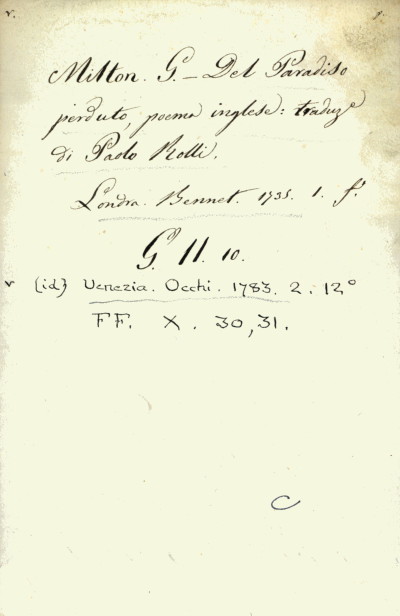 v. p.
Milton. G. – Del Paradiso
perduto, poema inglese: traduzᵉ
di Paolo Rolli.
Londra. Bennet. 1735. 1. fº.
G. II. 10.
v (id) Venezia. Occhi. 1783. 2. 12º
FF. X. 30,31.
C